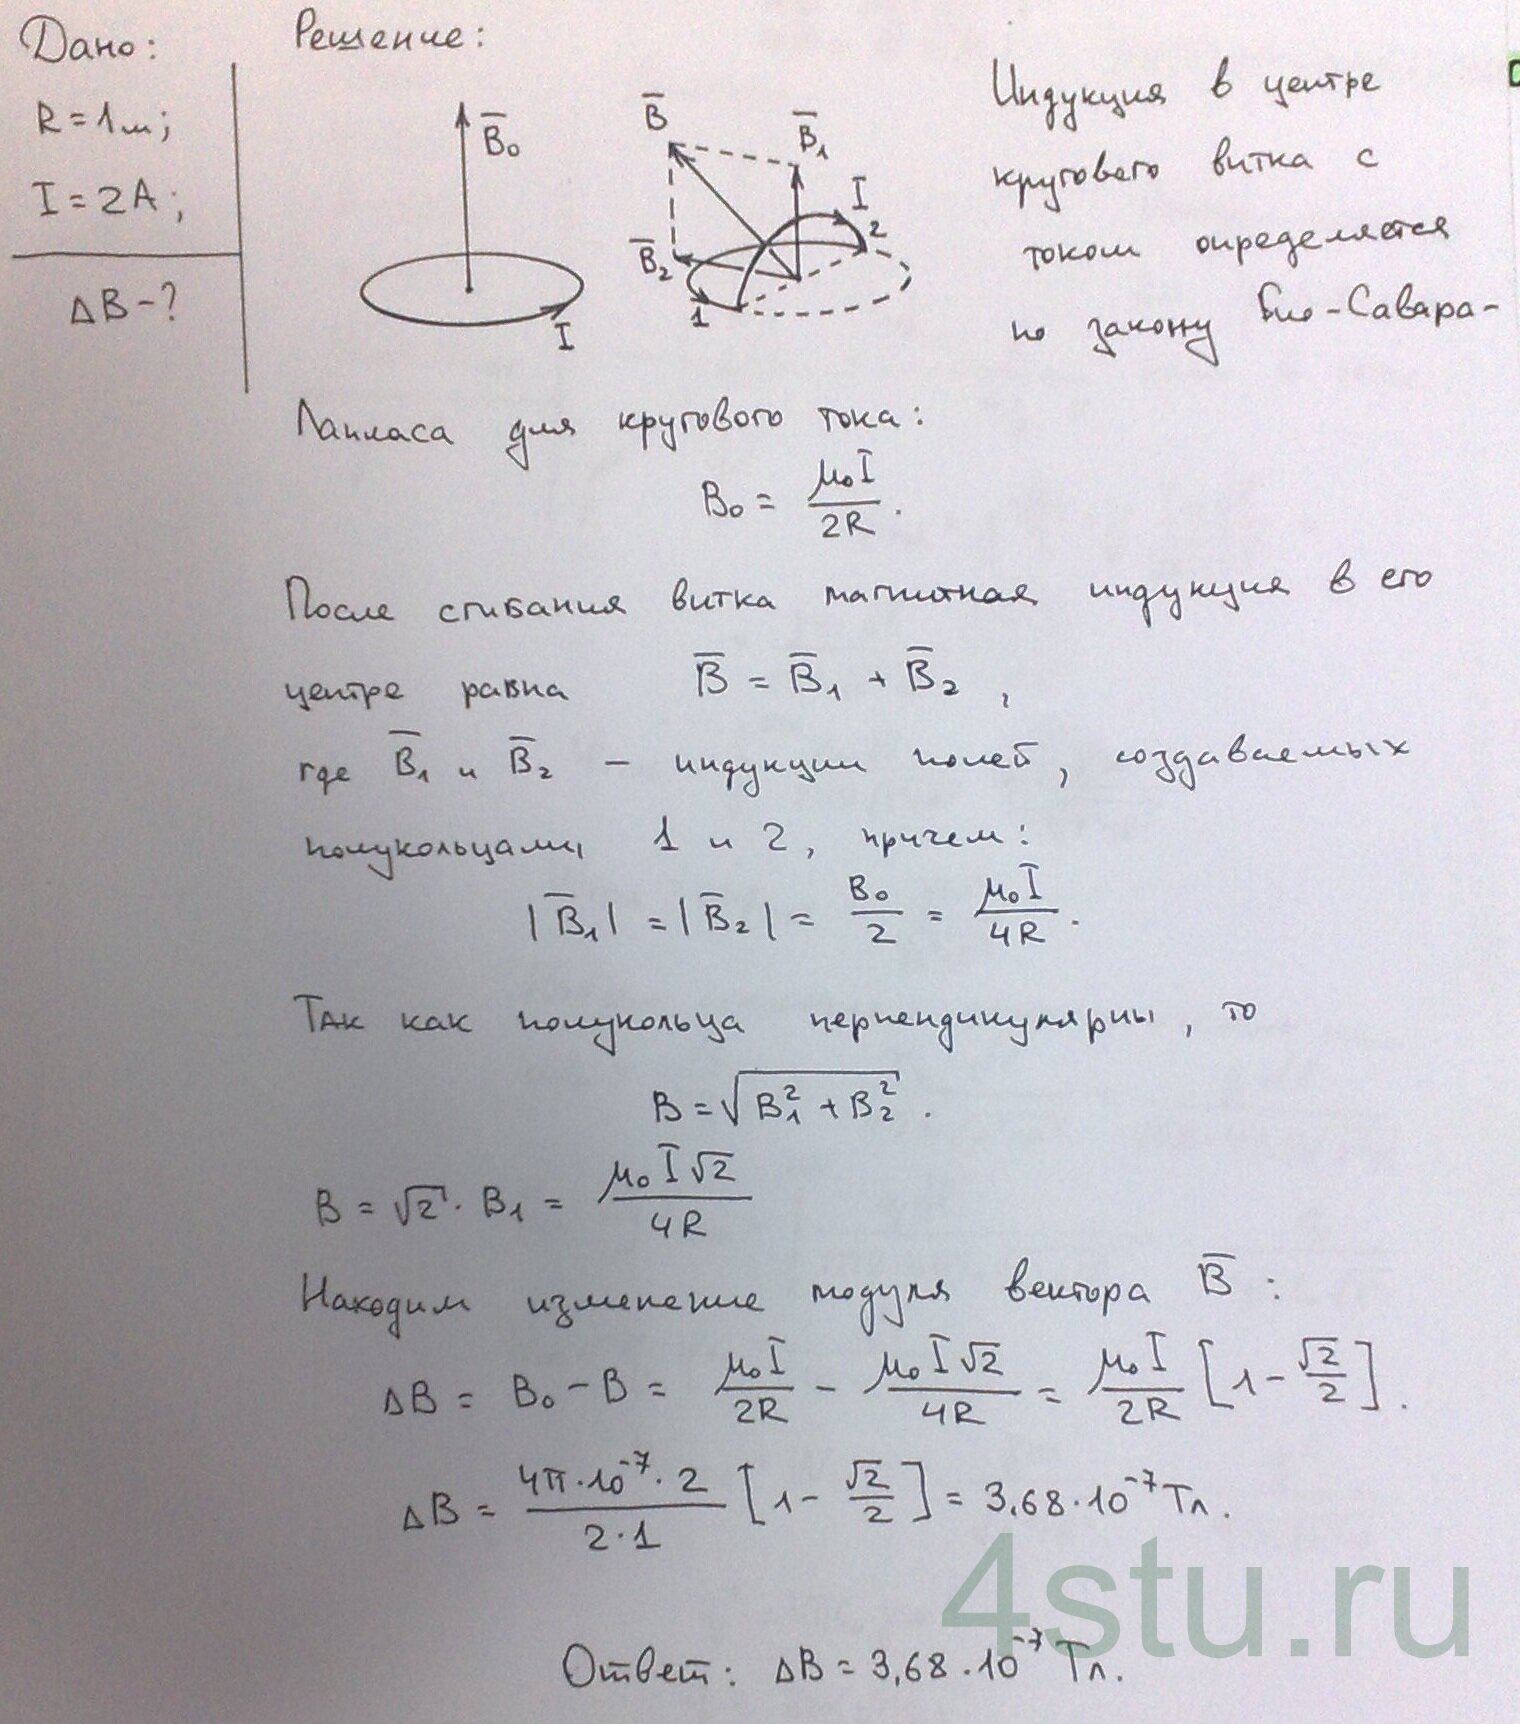 Дано:
R = 1м;
I = 2А;
ΔB - ?
Решение:
B̅₀
I
B̅
B̅₁
I
2
B̅₂
1
Индукция в центре
кругового витка с
током определяется
по закону Био-Савара-
Лапласа для кругового тока:
B₀ = μ₀I / 2R .
После сгибания витка магнитная индукция в его
центре равна B̅ = B̅₁ + B̅₂ ,
где B̅₁ и B̅₂ – индукции полей, создаваемых
полукольцами 1 и 2, причем:
|B̅₁| = |B̅₂| = B₀ / 2 = μ₀I / 4R .
Так как полукольца перпендикулярны, то
B = √(B₁² + B₂²) .
B = √2 · B₁ = μ₀I√2 / 4R
Находим изменение модуля вектора B̅ :
ΔB = B₀ - B = μ₀I / 2R - μ₀I√2 / 4R = μ₀I / 2R [1 - √2 / 2] .
ΔB = 4π·10⁻⁷·2 / 2·1 [1 - √2 / 2] = 3,68·10⁻⁷ Тл.
4stu.ru
Ответ: ΔB = 3,68·10⁻⁷ Тл.